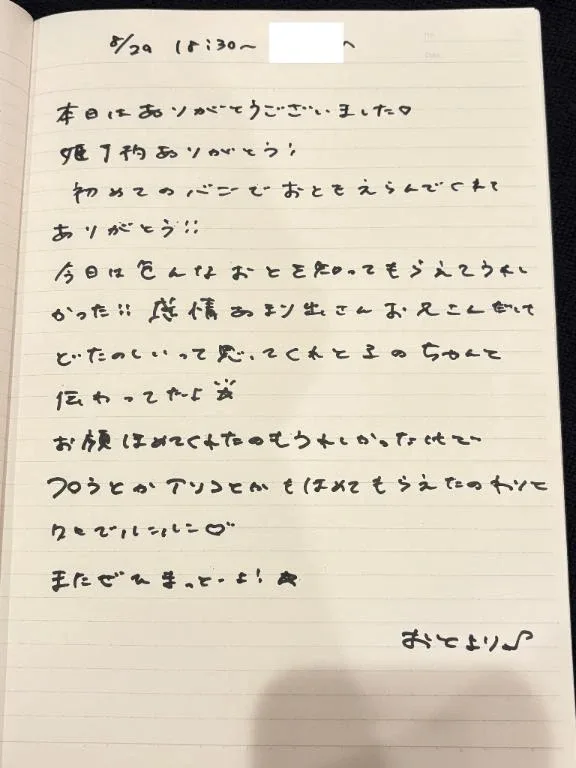 8/29 18:30〜 へ
本日はありがとうございました♡
姫予約ありがとう!
初めてのバニーでおとをえらんでくれて
ありがとう!!
今日は色んなおとを知ってもらえてうれし
かった!! 感情あまり出さんお兄さんだけ
どたのしいって思ってくれとるのちゃんと
伝わってたよ☆
お顔ほめてくれたのもうれしかったけど
フロうとかアソコとかもほめてもらえたのわりと
でルンルン♡
またぜひまっとーよ! ☆
おとより♪